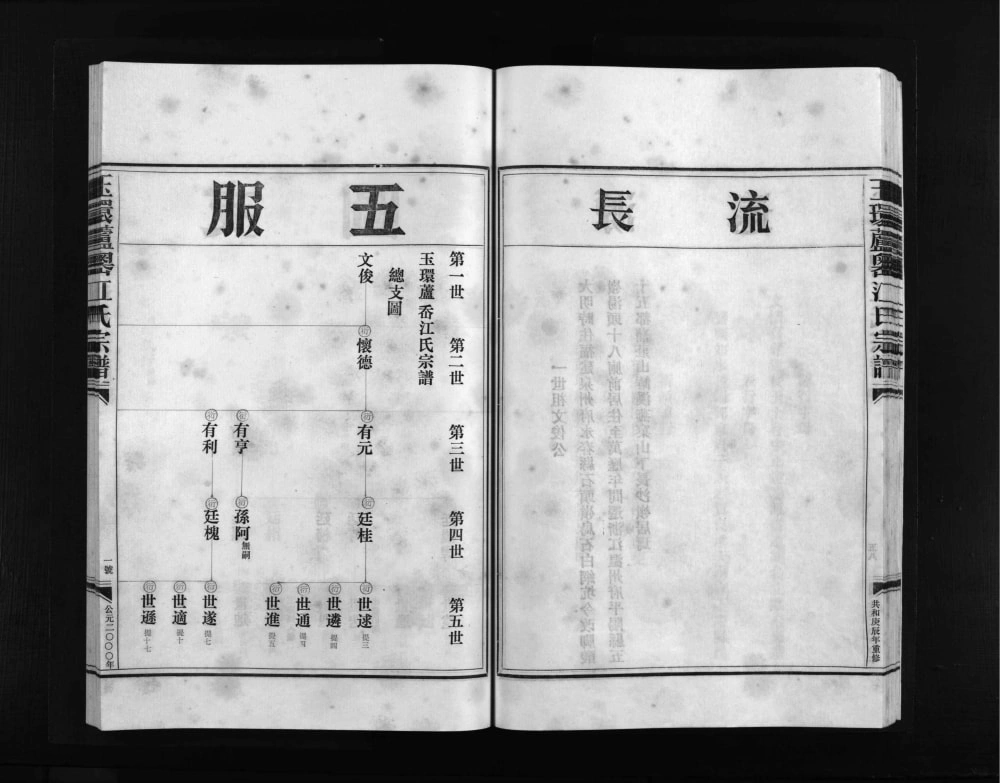 流長
玉環蘆岙江氏宗譜
共和庚辰年重修
五服
第一世
第二世
第三世
第四世
第五世
玉環蘆岙江氏宗譜
總支圖
文俊
懷德
有元
廷桂
世逑 提三
世遴 提四
世通
世進 提五
有亨
孫阿 無嗣
有利
廷槐
世遂 提七
世適 提十
世遜 提十七
玉環蘆岙江氏宗譜
一號
公元二〇〇〇年